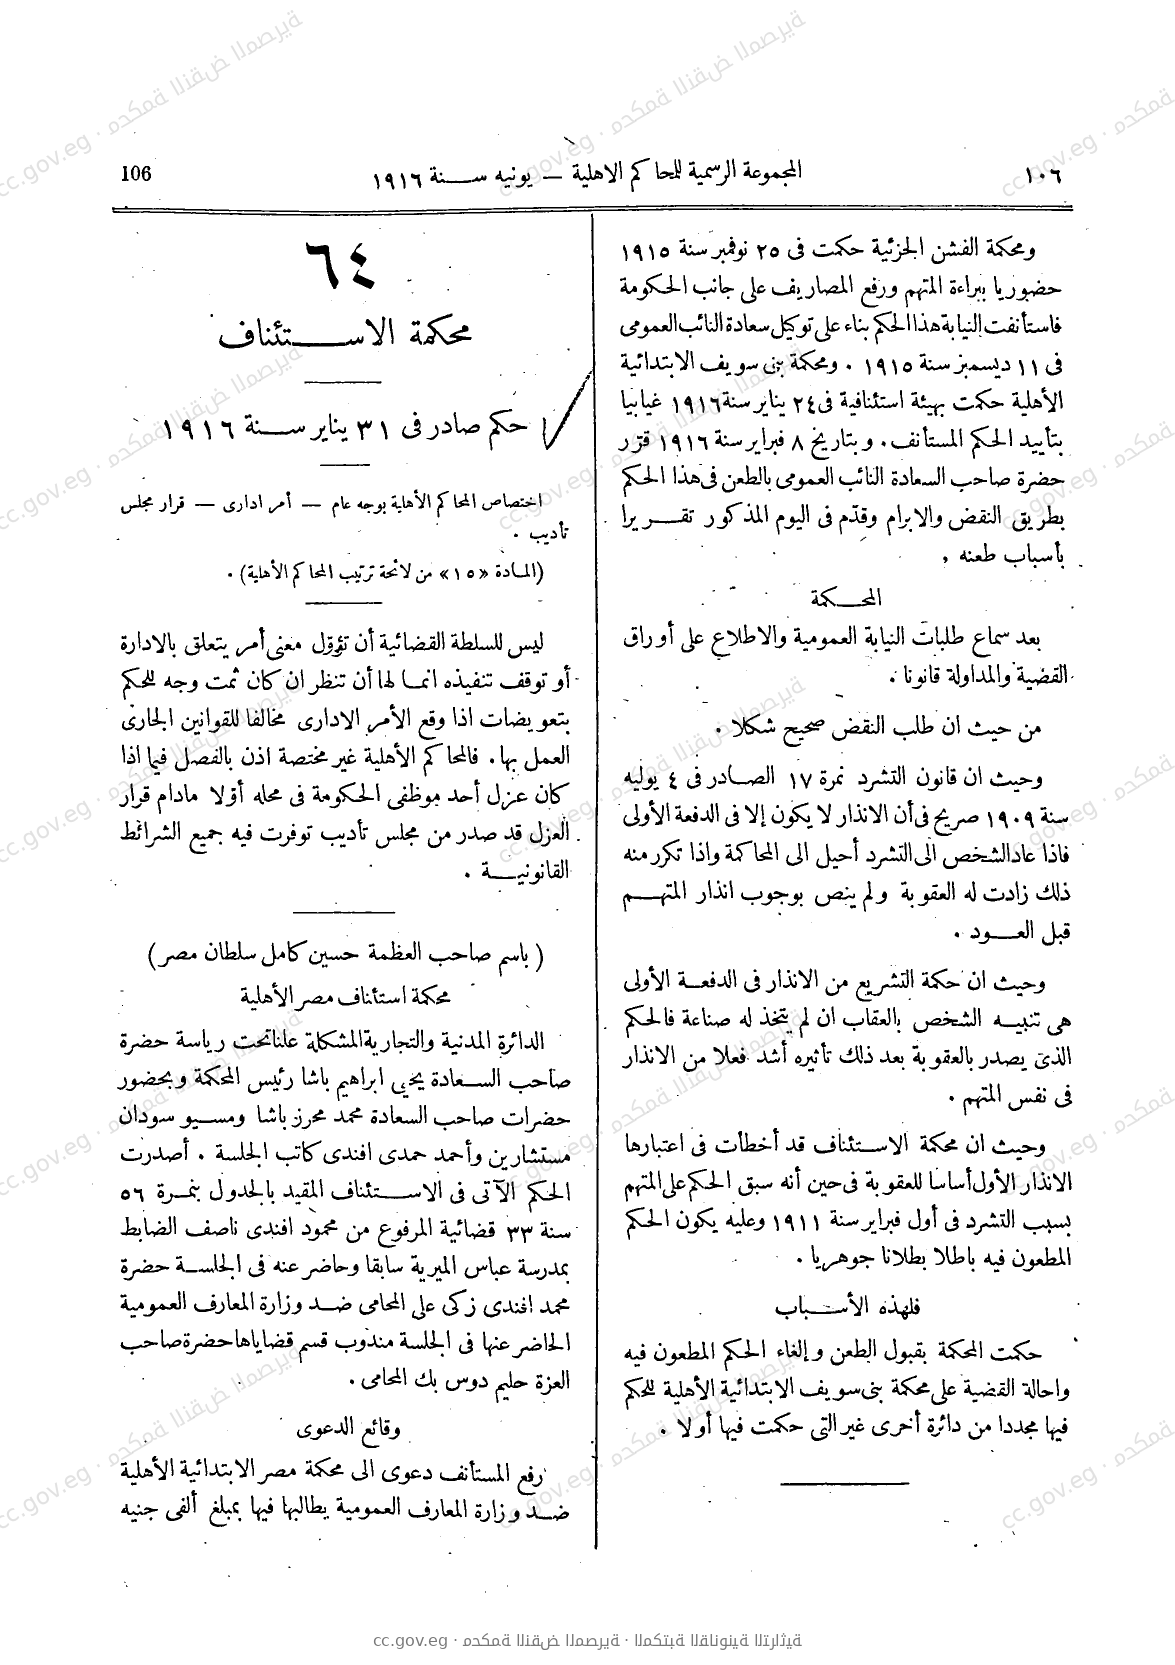 ١٠٦
المجموعة الرسمية للمحاكم الاهلية — يونيه سنة ١٩١٦
106
ومحكمة الفشن الجزئية حكمت فى ٢٥ نوفمبر سنة ١٩١٥
حضوريا ببراءة المتهم ورفع المصاريف على جانب الحكومة
فاستأنفت النيابة هذا الحكم بناء على توكيل سعادة النائب العمومى
فى ١١ ديسمبر سنة ١٩١٥ . ومحكمة بنى سويف الابتدائية
الأهلية حكمت بهيئة استئنافية فى ٢٤ يناير سنة ١٩١٦ غيابيا
بتأييد الحكم المستأنف . وبتاريخ ٨ فبراير سنة ١٩١٦ قرّر
حضرة صاحب السعادة النائب العمومى بالطعن فى هذا الحكم
بطريق النقض والابرام وقدّم فى اليوم المذكور تقريرا
بأسباب طعنه .
المحكمة
بعد سماع طلبات النيابة العمومية والاطلاع على أوراق
القضية والمداولة قانونا .
من حيث ان طلب النقض صحيح شكلا .
وحيث ان قانون التشرد نمرة ١٧ الصادر فى ٤ يوليه
سنة ١٩٠٩ صريح فى أن الانذار لا يكون إلا فى الدفعة الأولى
فاذا عاد الشخص الى التشرد أحيل الى المحاكمة واذا تكرر منه
ذلك زادت له العقوبة ولم ينص بوجوب انذار المتهم
قبل العود .
وحيث ان حكمة التشريع من الانذار فى الدفعة الأولى
هى تنبيه الشخص بالعقاب ان لم يتخذ له صناعة فالحكم
الذى يصدر بالعقوبة بعد ذلك تأثيره أشد فعلا من الانذار
فى نفس المتهم .
وحيث ان محكمة الاستئناف قد أخطأت فى اعتبارها
الانذار الأول أساسا للعقوبة فى حين أنه سبق الحكم على المتهم
بسبب التشرد فى أول فبراير سنة ١٩١١ وعليه يكون الحكم
المطعون فيه باطلا بطلانا جوهريا .
فلهذه الأسباب
حكمت المحكمة بقبول الطعن وإلغاء الحكم المطعون فيه
واحالة القضية على محكمة بنى سويف الابتدائية الأهلية للحكم
فيها مجددا من دائرة أخرى غير التى حكمت فيها أولا .
٦٤
محكمة الاستئناف
حكم صادر فى ٣١ يناير سنة ١٩١٦
اختصاص المحاكم الأهلية بوجه عام — أمر ادارى — قرار مجلس
تأديب .
(المادة «١٥» من لائحة ترتيب المحاكم الأهلية) .
ليس للسلطة القضائية أن تؤوّل معنى أمر يتعلق بالادارة
أو توقف تنفيذه انما لها أن تنظر ان كان ثمت وجه للحكم
بتعويضات اذا وقع الأمر الادارى مخالفا للقوانين الجارى
العمل بها . فالمحاكم الأهلية غير مختصة اذن بالفصل فيما اذا
كان عزل أحد موظفى الحكومة فى محله أوّلا مادام قرار
العزل قد صدر من مجلس تأديب توفرت فيه جميع الشرائط
القانونية .
( باسم صاحب العظمة حسين كامل سلطان مصر )
محكمة استئناف مصر الأهلية
الدائرة المدنية والتجارية المشكلة علنا تحت رياسة حضرة
صاحب السعادة يحيى ابراهيم باشا رئيس المحكمة وبحضور
حضرات صاحب السعادة محمد محرز باشا ومسيو سودان
مستشارين وأحمد حمدى افندى كاتب الجلسة . أصدرت
الحكم الآتى فى الاستئناف المقيد بالجدول بنمرة ٥٦
سنة ٣٣ قضائية المرفوع من محمود افندى ناصف الضابط
بمدرسة عباس الميرية سابقا وحاضر عنه فى الجلسة حضرة
محمد افندى زكى على المحامى ضد وزارة المعارف العمومية
الحاضر عنها فى الجلسة مندوب قسم قضاياها حضرة صاحب
العزة حليم دوس بك المحامى .
وقائع الدعوى
رفع المستأنف دعوى الى محكمة مصر الابتدائية الأهلية
ضد وزارة المعارف العمومية يطالبها فيها بمبلغ ألفى جنيه
cc.gov.eg · محكمة النقض المصرية · المكتبة القانونية التراثية